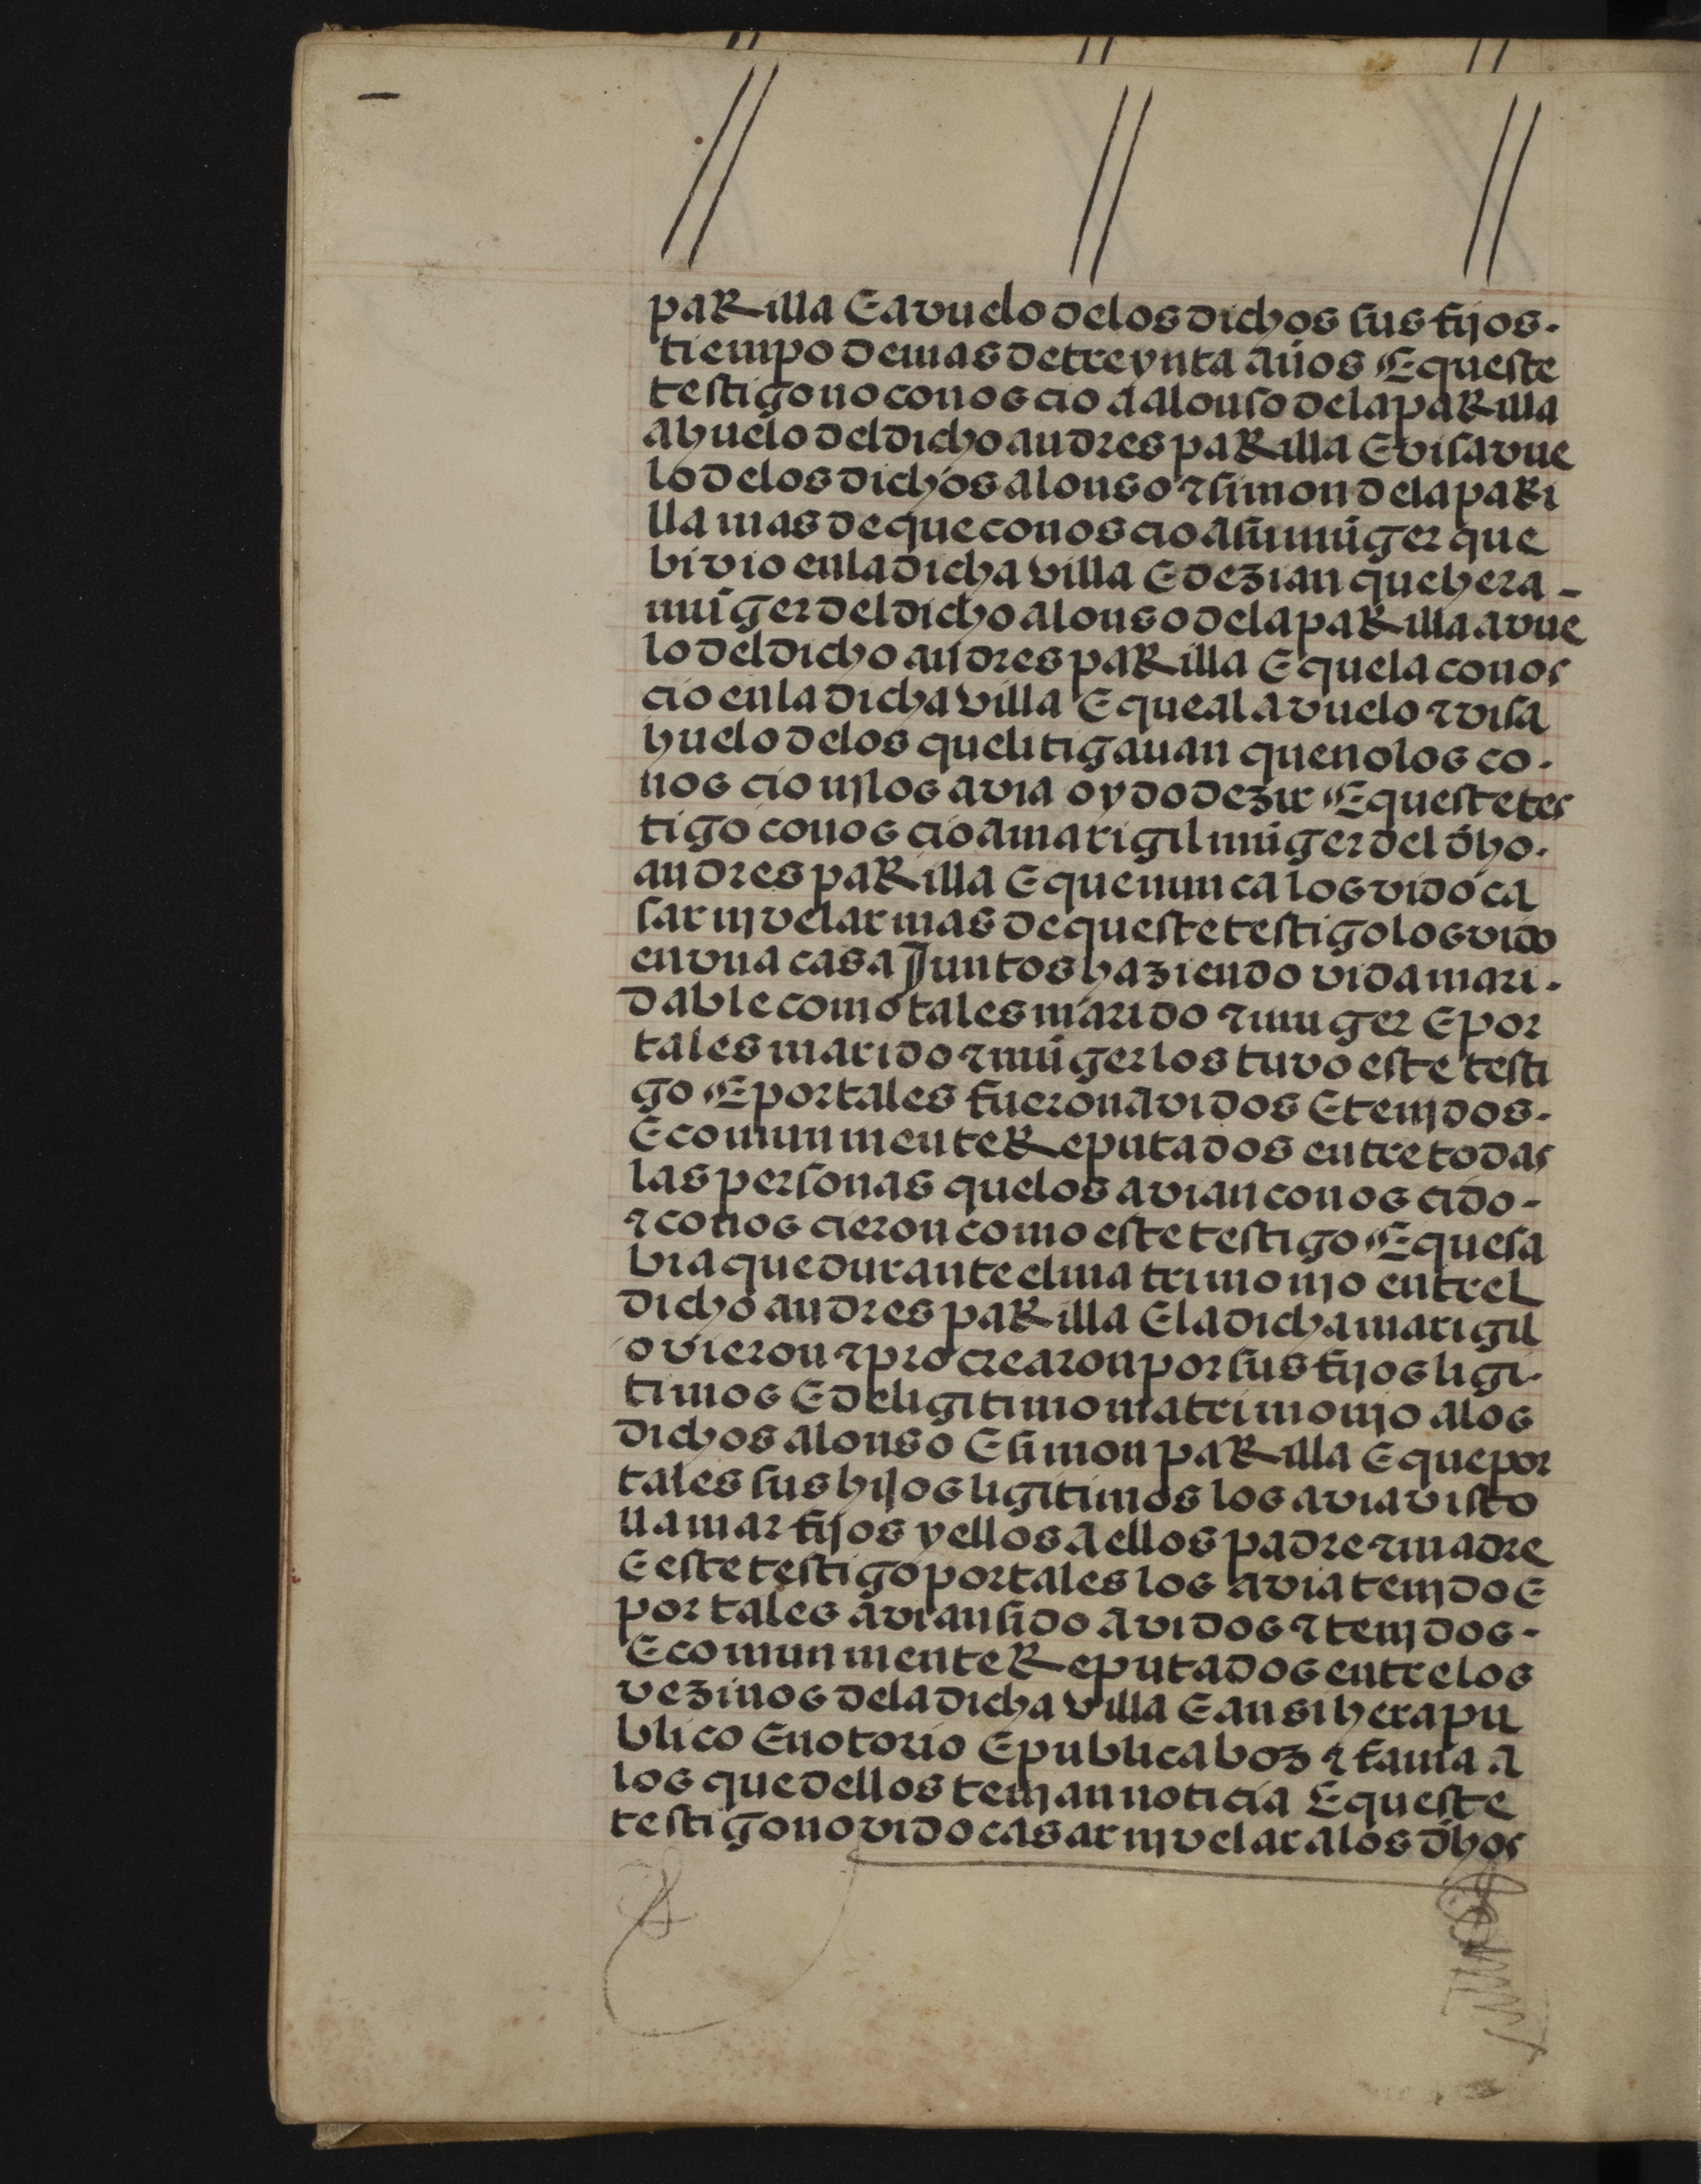 paRilla E avuelo delos dichos sus fijos.
tiempo de mas de treynta años E queste
testigo no conoscio a alonso dela paRilla
ahuelo del dicho andres paRilla E visavue
lo delos dichos alonso ⁊ simon dela paRi
lla mas de que conoscio a su muger que
bivio enla dicha villa E dezian que hera -
muger del dicho alonso dela paRilla avue
lo del dicho andres paRilla E quela conos
cio enla dicha villa E que al avuelo ⁊ visa
huelo delos que litigauan que nolos co.
noscio nj los avia oydo dezir E queste tes
tigo conoscio a mari gil muger del dho.
andres paRilla E que nunca los vido ca
sar nj velar mas de queste testigo los vido
en vna casa Juntos haziendo vida mari.
dable como tales marido ⁊ muger E por
tales marido ⁊ muger los tuvo este testi
go E por tales fueron avidos E tenjdos.
E comunmente Reputados entre todas
las personas quelos avian conoscido -
⁊ conoscieron como este testigo E que sa
bia que durante el matrimonjo entrel
dicho andres paRilla E la dicha mari gil
ovieron ⁊ procrearon por sus fijos ligi.
timos E de ligitimo matrimonjo alos
dichos alonso E simon paRilla E que por
tales sus hijos ligitimos los avia visto
llamar fijos y ellos a ellos padre ⁊ madre
E este testigo por tales los avia tenjdo E
por tales avian sido avidos ⁊ tenjdos.
E comunmente Reputados entre los
vezinos dela dicha villa E ansi hera pu
blico E notorio E publica boz ⁊ fama a
los que dellos tenjan noticia E queste
testigo no vido casar nj velar alos dhos